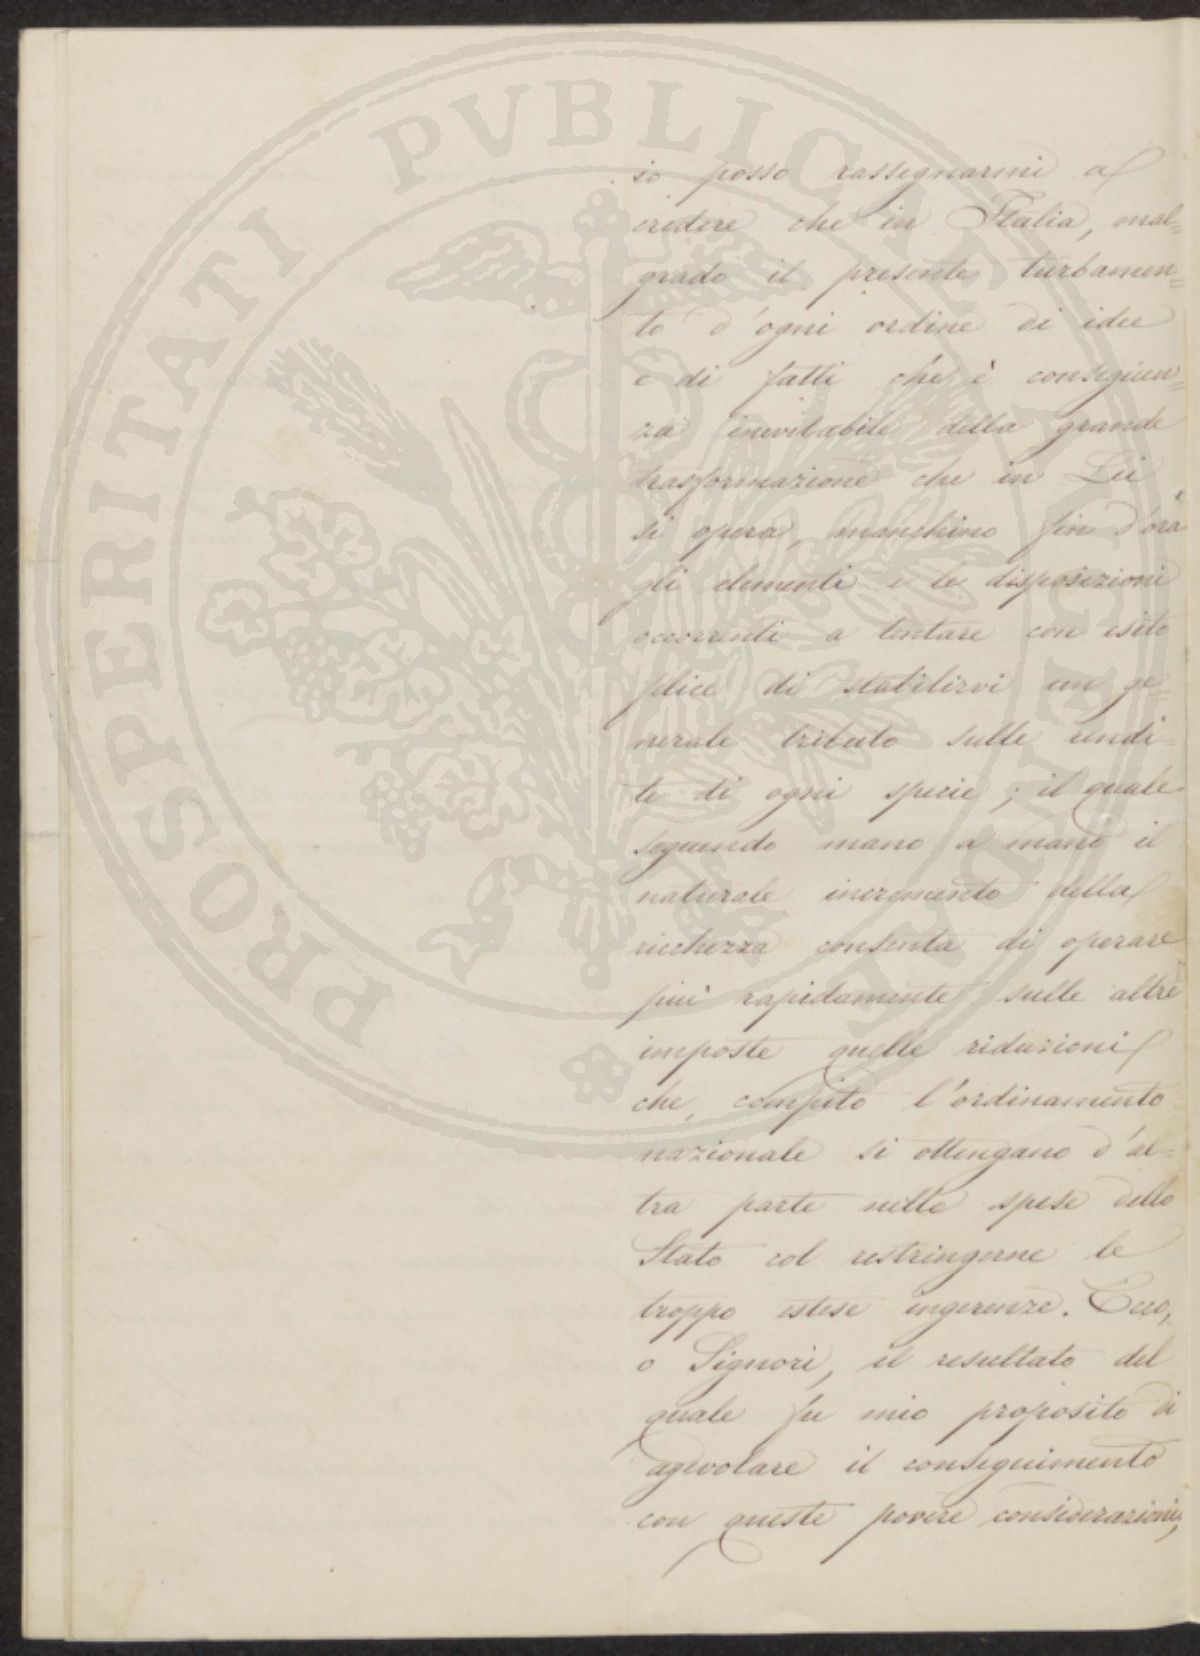 PROSPERITATI PVBLICAE AVGENDAE
io posso rassegnarmi a
credere che in Italia, mal=
grado il presente turbamen=
to d'ogni ordine di idee
e di fatti che è conseguen=
za inevitabile della grande
trasformazione che in Lei
si opera, manchino fin d'ora
gli elementi e le disposizioni
occorrenti a tentare con esito
felice di stabilirvi un ge=
nerale tributo sulle rendi=
te di ogni specie; il quale
seguendo mano a mano il
naturale incremento della
ricchezza consenta di operare
più rapidamente sulle altre
imposte quelle riduzioni
che, compito l'ordinamento
nazionale si ottengano d'al=
tra parte nelle spese dello
Stato col restringerne le
troppo estese ingerenze. Ecco,
o Signori, il resultato del
quale fu mio proposito di
agevolare il conseguimento
con queste povere considerazioni,